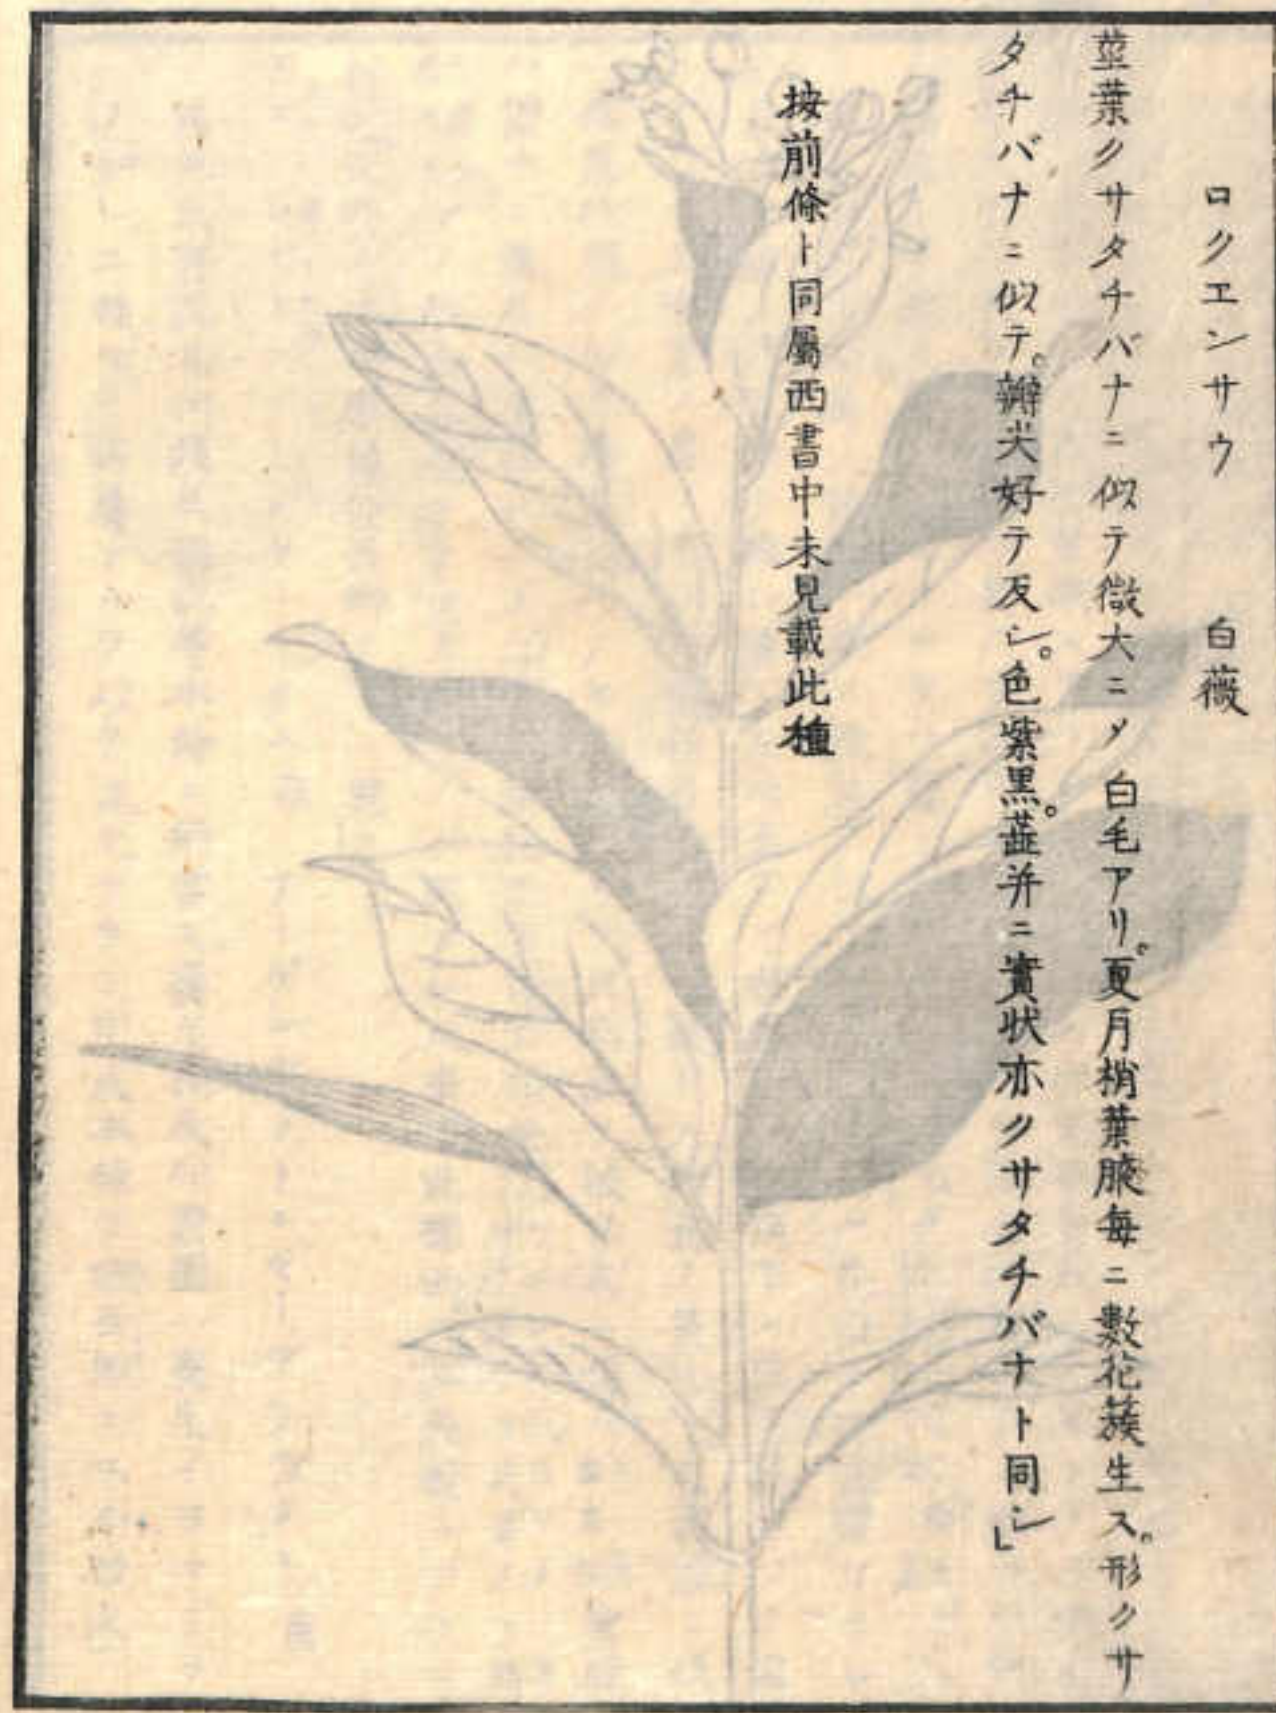 ロクエンサウ　白薇
莖葉クサタチバナニ似テ微大ニメ白毛アリ。夏月梢葉腋每ニ數花簇生ス。形クサ
タチバナニ似テ。瓣尖好テ反シ。色紫黒。蕋并ニ實状亦クサタチバナト同シ」
按前條ト同屬西書中未見載此種